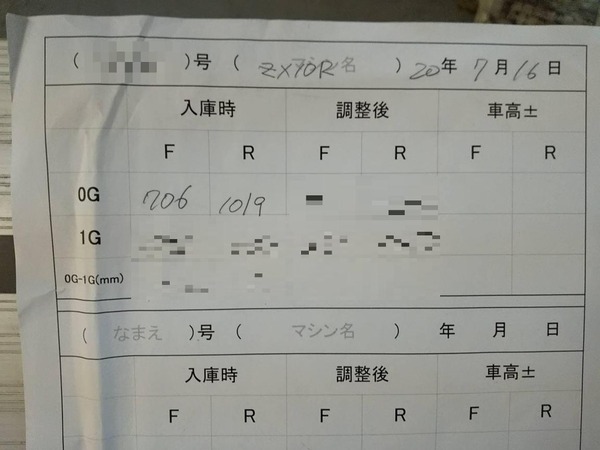 ( )号 ( ZX10R マシン名 ) 20年 7月16日
入庫時 調整後 車高±
F R F R F R
0G 706 1019
1G
0G-1G(mm)
( なまえ )号 ( マシン名 ) 年 月 日
入庫時 調整後 車高±
F R F R F R